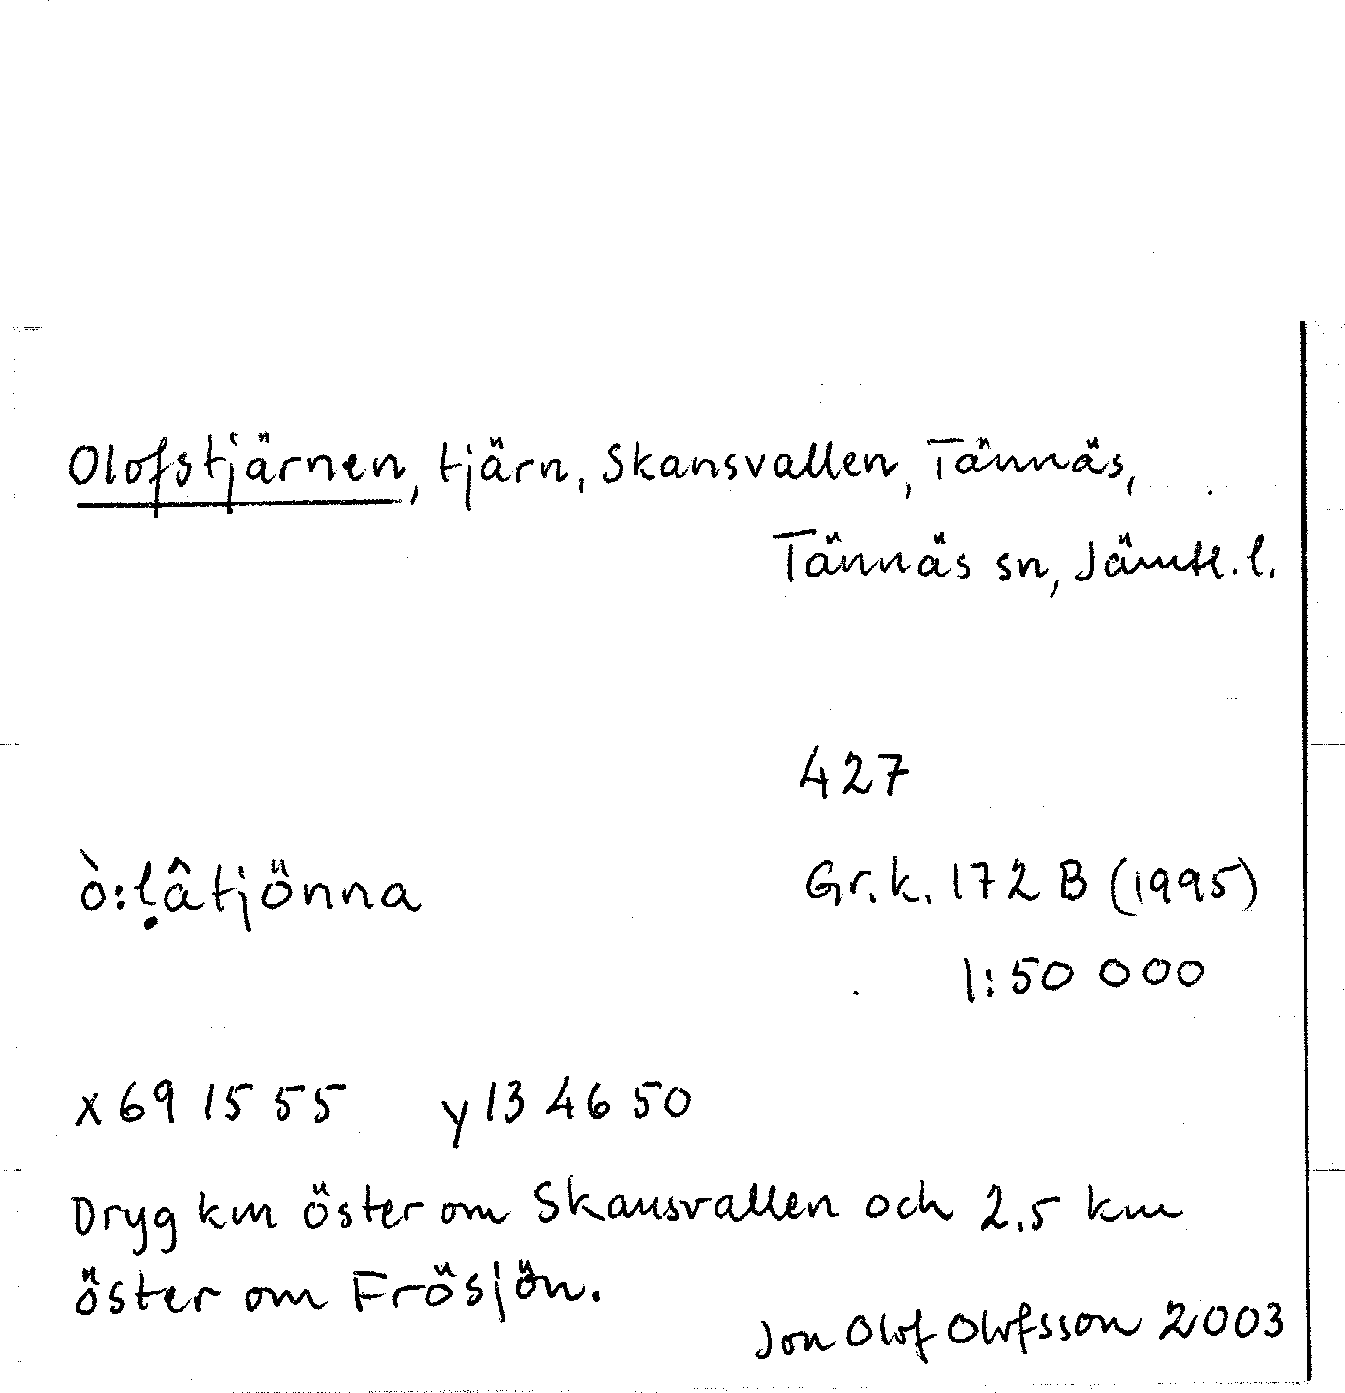 Olofstjärnen, tjärn, Skansvallen, Tännäs,
Tännäs sn, Jämtl. l.
427
ò:ḷâtjönna
Gr.k. 172 B (1995)
1:50 000
x 69 15 55 y 13 46 50
Dryg km öster om Skansvallen och 2,5 km
öster om Frösjön.
Jon Olof Olofsson 2003